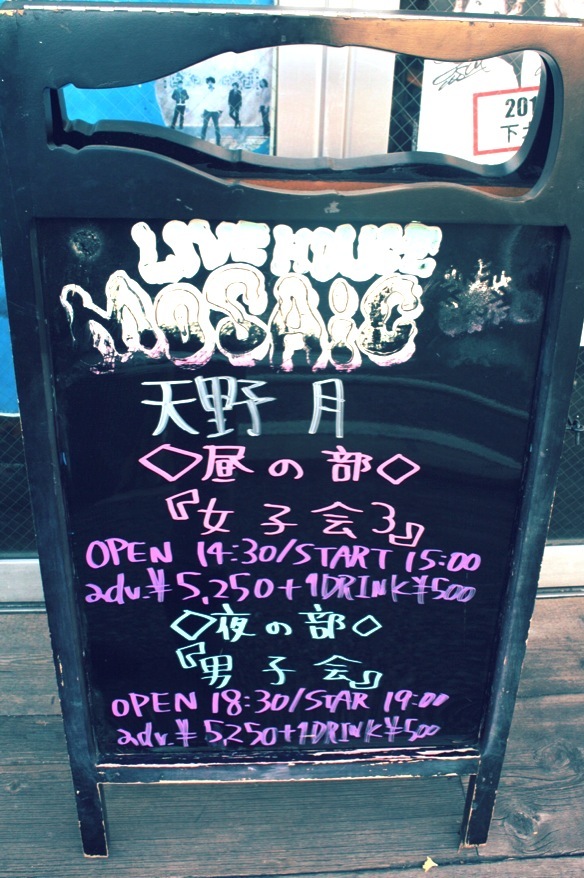 201
下
LIVE HOUSE
MOSAiC
天野 月
◇昼の部◇
『女子会3』
OPEN 14:30/START 15:00
adv.¥5,250+1DRINK¥500
◇夜の部◇
『男子会』
OPEN 18:30/STAR 19:00
adv.¥5,250+1DRINK¥500